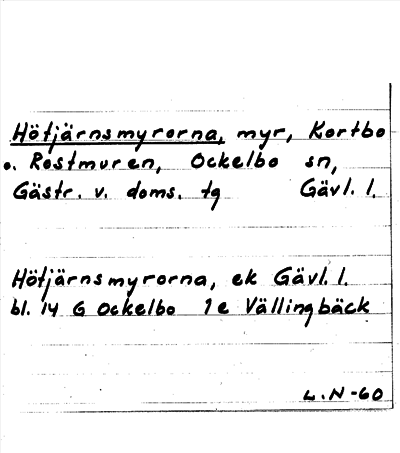 Hötjärnsmyrorna, myr, Kortbo
o. Rostmuren, Ockelbo sn,
Gästr. v. doms. tg Gävl. l.
Hötjärnsmyrorna, ek Gävl. l.
bl. 14 G Ockelbo 1e Vällingbäck
L.N-60